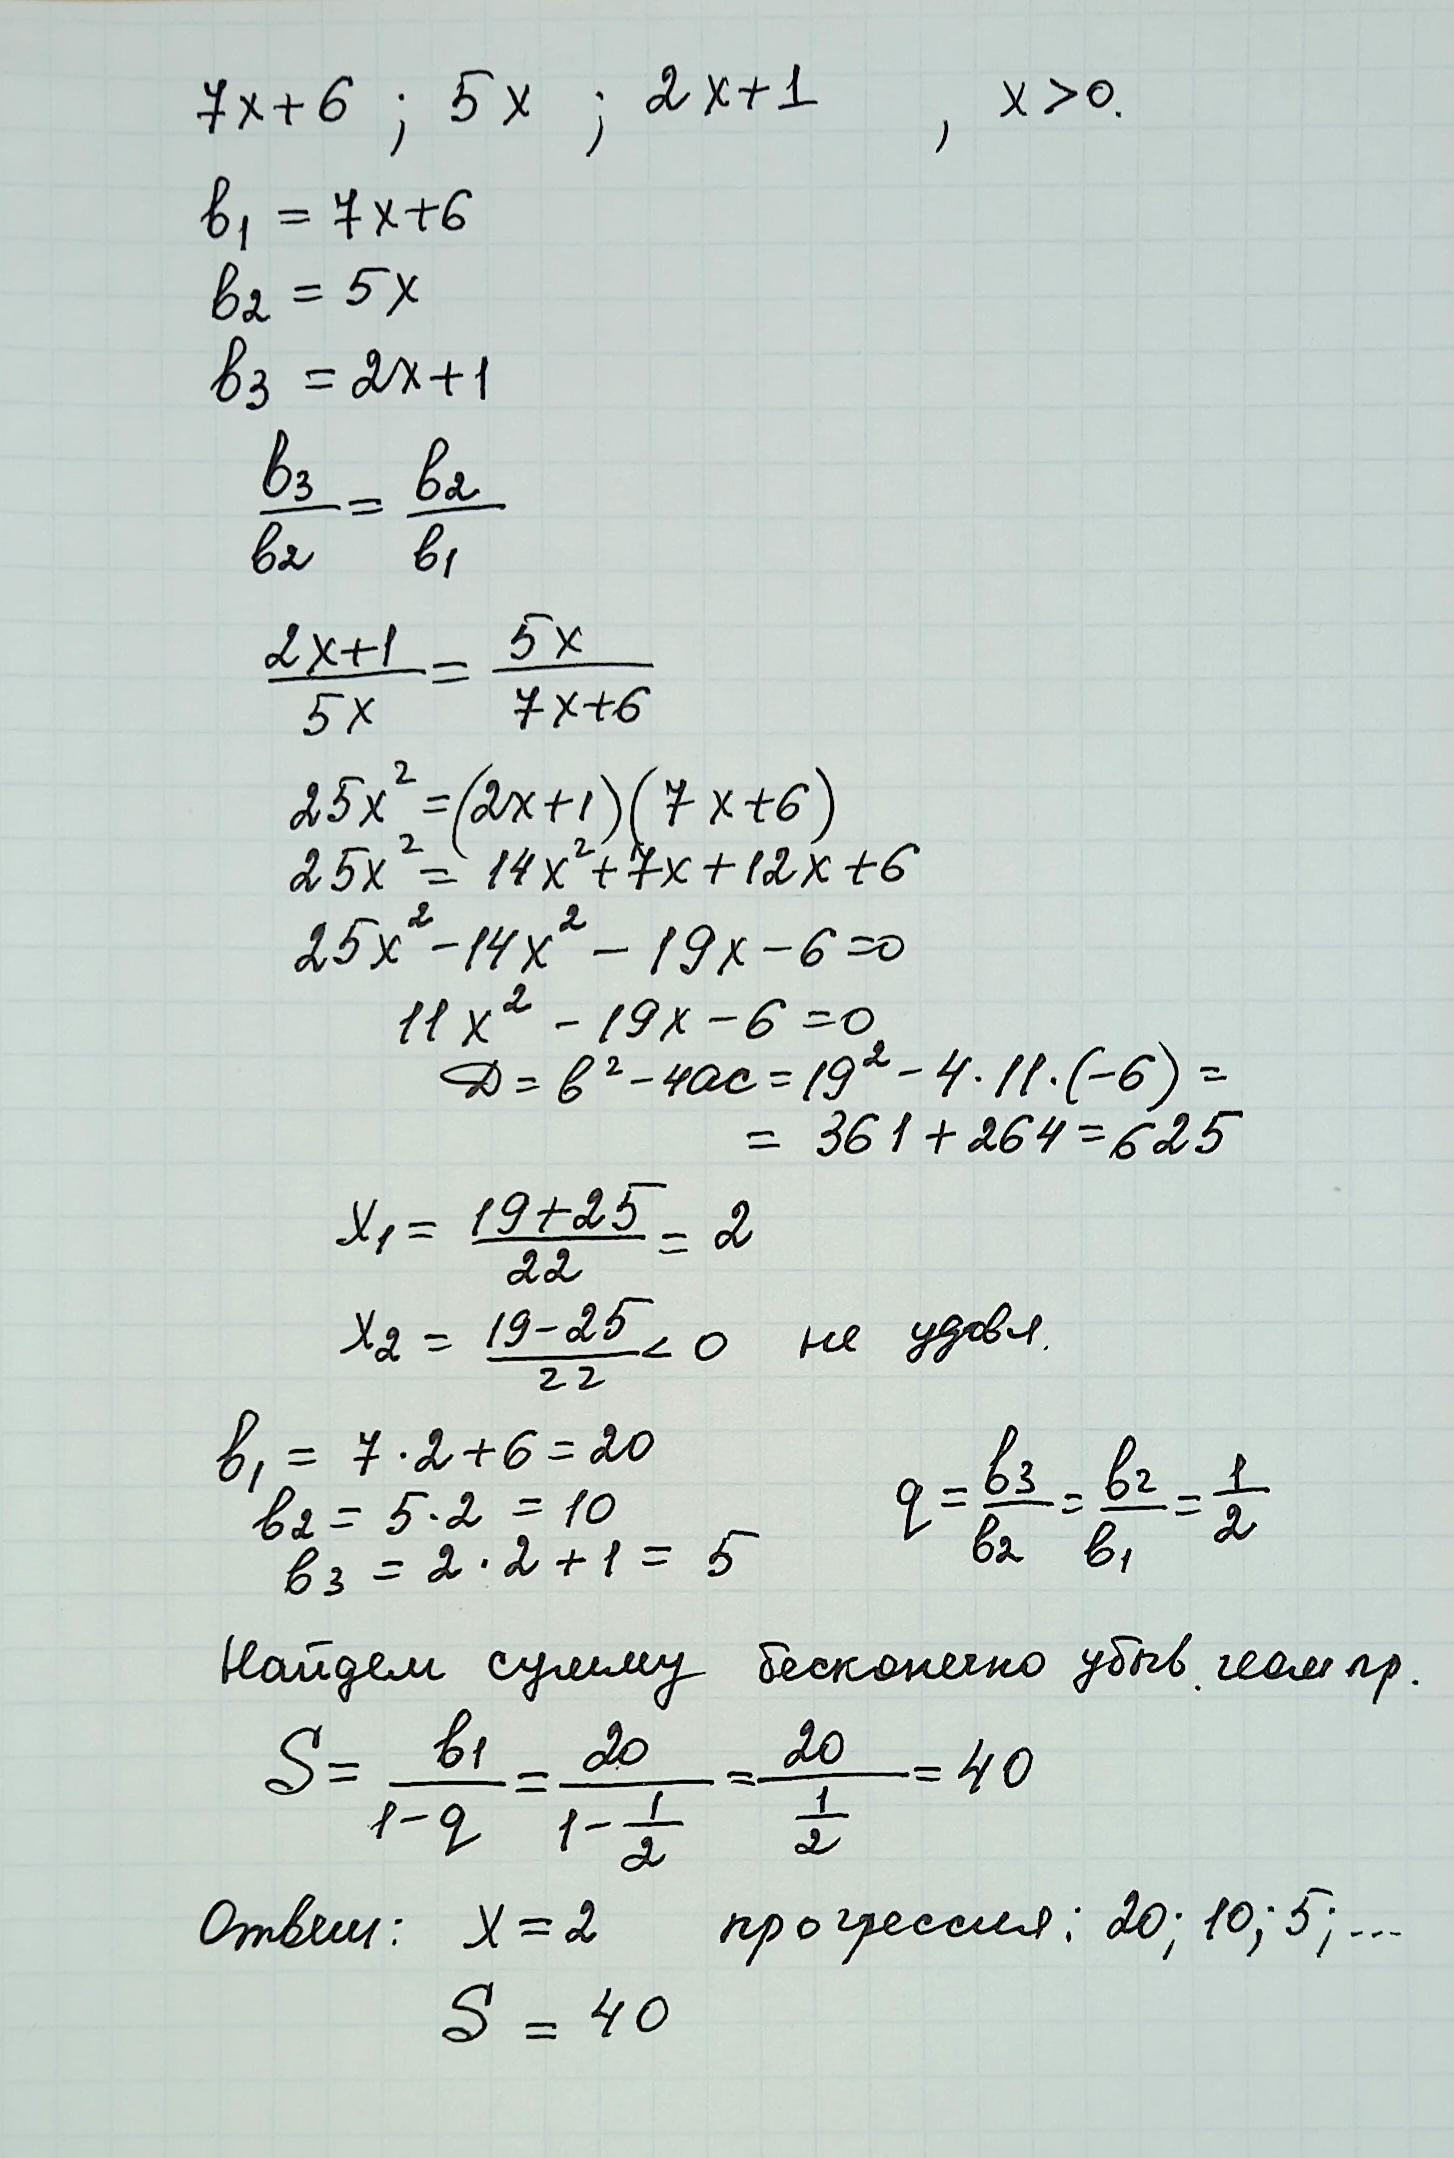 7x+6 ; 5x ; 2x+1 , x>0.
b₁ = 7x+6
b₂ = 5x
b₃ = 2x+1
b₃/b₂ = b₂/b₁
(2x+1)/(5x) = (5x)/(7x+6)
25x² = (2x+1)(7x+6)
25x² = 14x²+7x+12x+6
25x²-14x² - 19x - 6 = 0
11x² - 19x - 6 = 0
Д = b² - 4ac = 19² - 4·11·(-6) =
= 361 + 264 = 625
x₁ = (19+25)/22 = 2
x₂ = (19-25)/22 < 0 не удовл.
b₁ = 7·2+6 = 20
b₂ = 5·2 = 10
b₃ = 2·2+1 = 5
q = b₃/b₂ = b₂/b₁ = 1/2
Найдем сумму бесконечно убыв. геом пр.
S = b₁/(1-q) = 20/(1-1/2) = 20/(1/2) = 40
Ответ: x = 2 прогрессия: 20; 10; 5; ...
S = 40